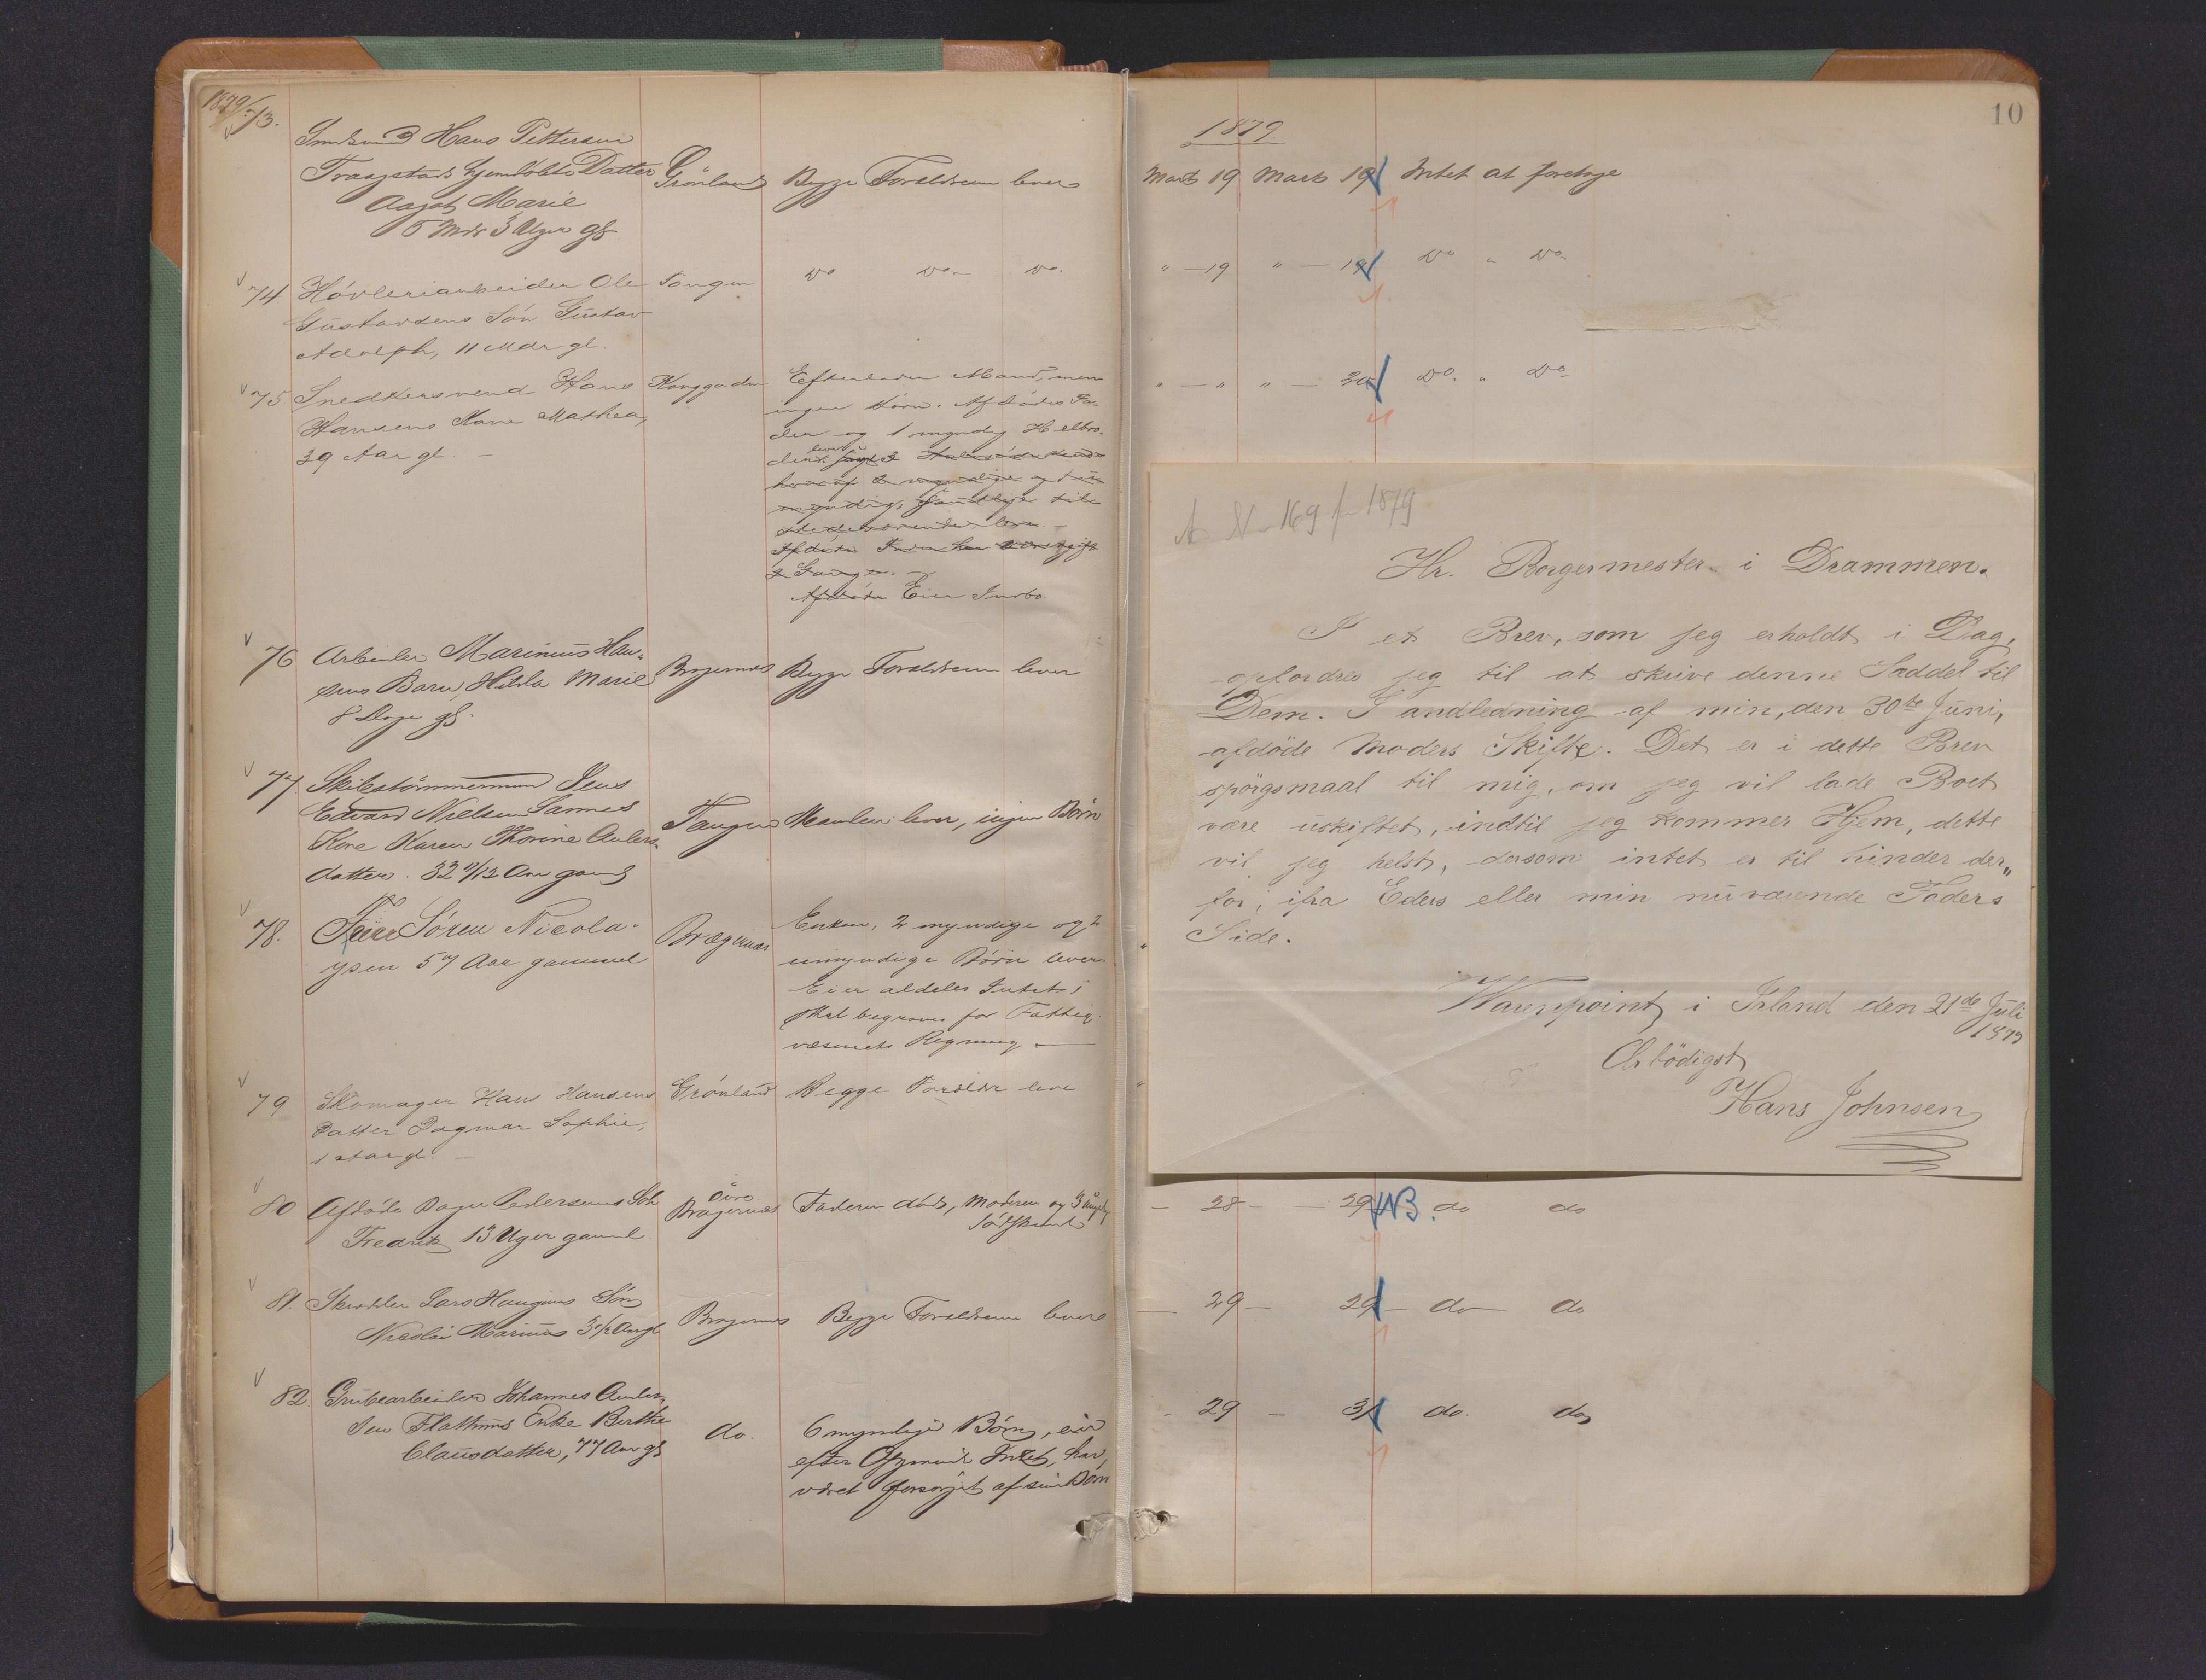 1879
73.
Hans Pettersen
hjemdøbte Datter
Marie
5 Mdr 3 Uger gl
Grönland
Begge Forældrene lever
74. Høvleriarbeider Ole
Gustavsens Sön Gustav
Adolph, 11 Mdr gl.
Tangen
Do Do Do.
75. Snedkersvend Hans
Hansens Kone Mathea,
39 Aar gl. -
Konggaden
Efterlader Mand, men
ingen Börn. Afdödes Fa-
der og 1 myndig Helbro-
der
lever
Afdöde Eier Indbo
76 Arbeider Marinius Han-
sens Barn Hilda Marie
8 Dage gl.
Bragernæs
Begge Forældrene lever
77 Skibstömmermand Jens
Edvard Nielsen Sannes
Kone Karen Thorine Anders-
datter. 32 11/12 Aar gammel
Tangen
Manden lever, ingen Börn
78. Sören Nicola-
ysen 57 Aar gammel
Bragernæs
Enken, 2 myndige og 2
umyndige Börn lever.
Eier aldeles Intet;
skal begraves for Fattig-
væsenets Regning -
79 Skomager Hans Hansens
Datter Dagmar Sophie,
1 Aar gl. -
Grönland
Begge Forældre leve
80 Afdöde Pedersens Sön
Fredrik 13 Uger gammel
Övre
Bragernæs
Faderen död, Moderen og 3
Södskende
81. Skrædder Lars Haugens Sön
Nicolai Marinus 3 1/2 Aar gl
Bragernæs
Begge Forældrene lever
82. Grubearbeider Johannes Ander-
sen Flathuus Enke Berthe
Clausdatter, 77 Aar gl
do.
6 myndige Börn, eier
efter Intet, har
været forsörjet af sine Börn
10
1879
Marts 19 Marts 19 Intet at foretage
" - 19 " - 19 Do " Do
" - " " - 20 Do. " Do
No 169 f 1879
Hr. Borgermester i Drammen.
I et Brev, som jeg erholdt i Dag,
opfordres jeg til at skrive denne Saddel til
Dem. I andledning af min, den 30te Juni,
afdöde Moders Skifte. Det er i dette Brev
spörgsmaal til mig, om jeg vil lade Boet
være uskiftet, indtil jeg kommer Hjem, dette
vil jeg helst, dersom intet er til hinder der„
for, ifra Eders eller min nuværende Faders
Side.
Warenpoint i Irland den 21de Juli
1879
Ærbödigst
Hans Johnsen
- 28 - - 29 NB. do do
- 29 - 29 - do do
- 29 - 31 do. do